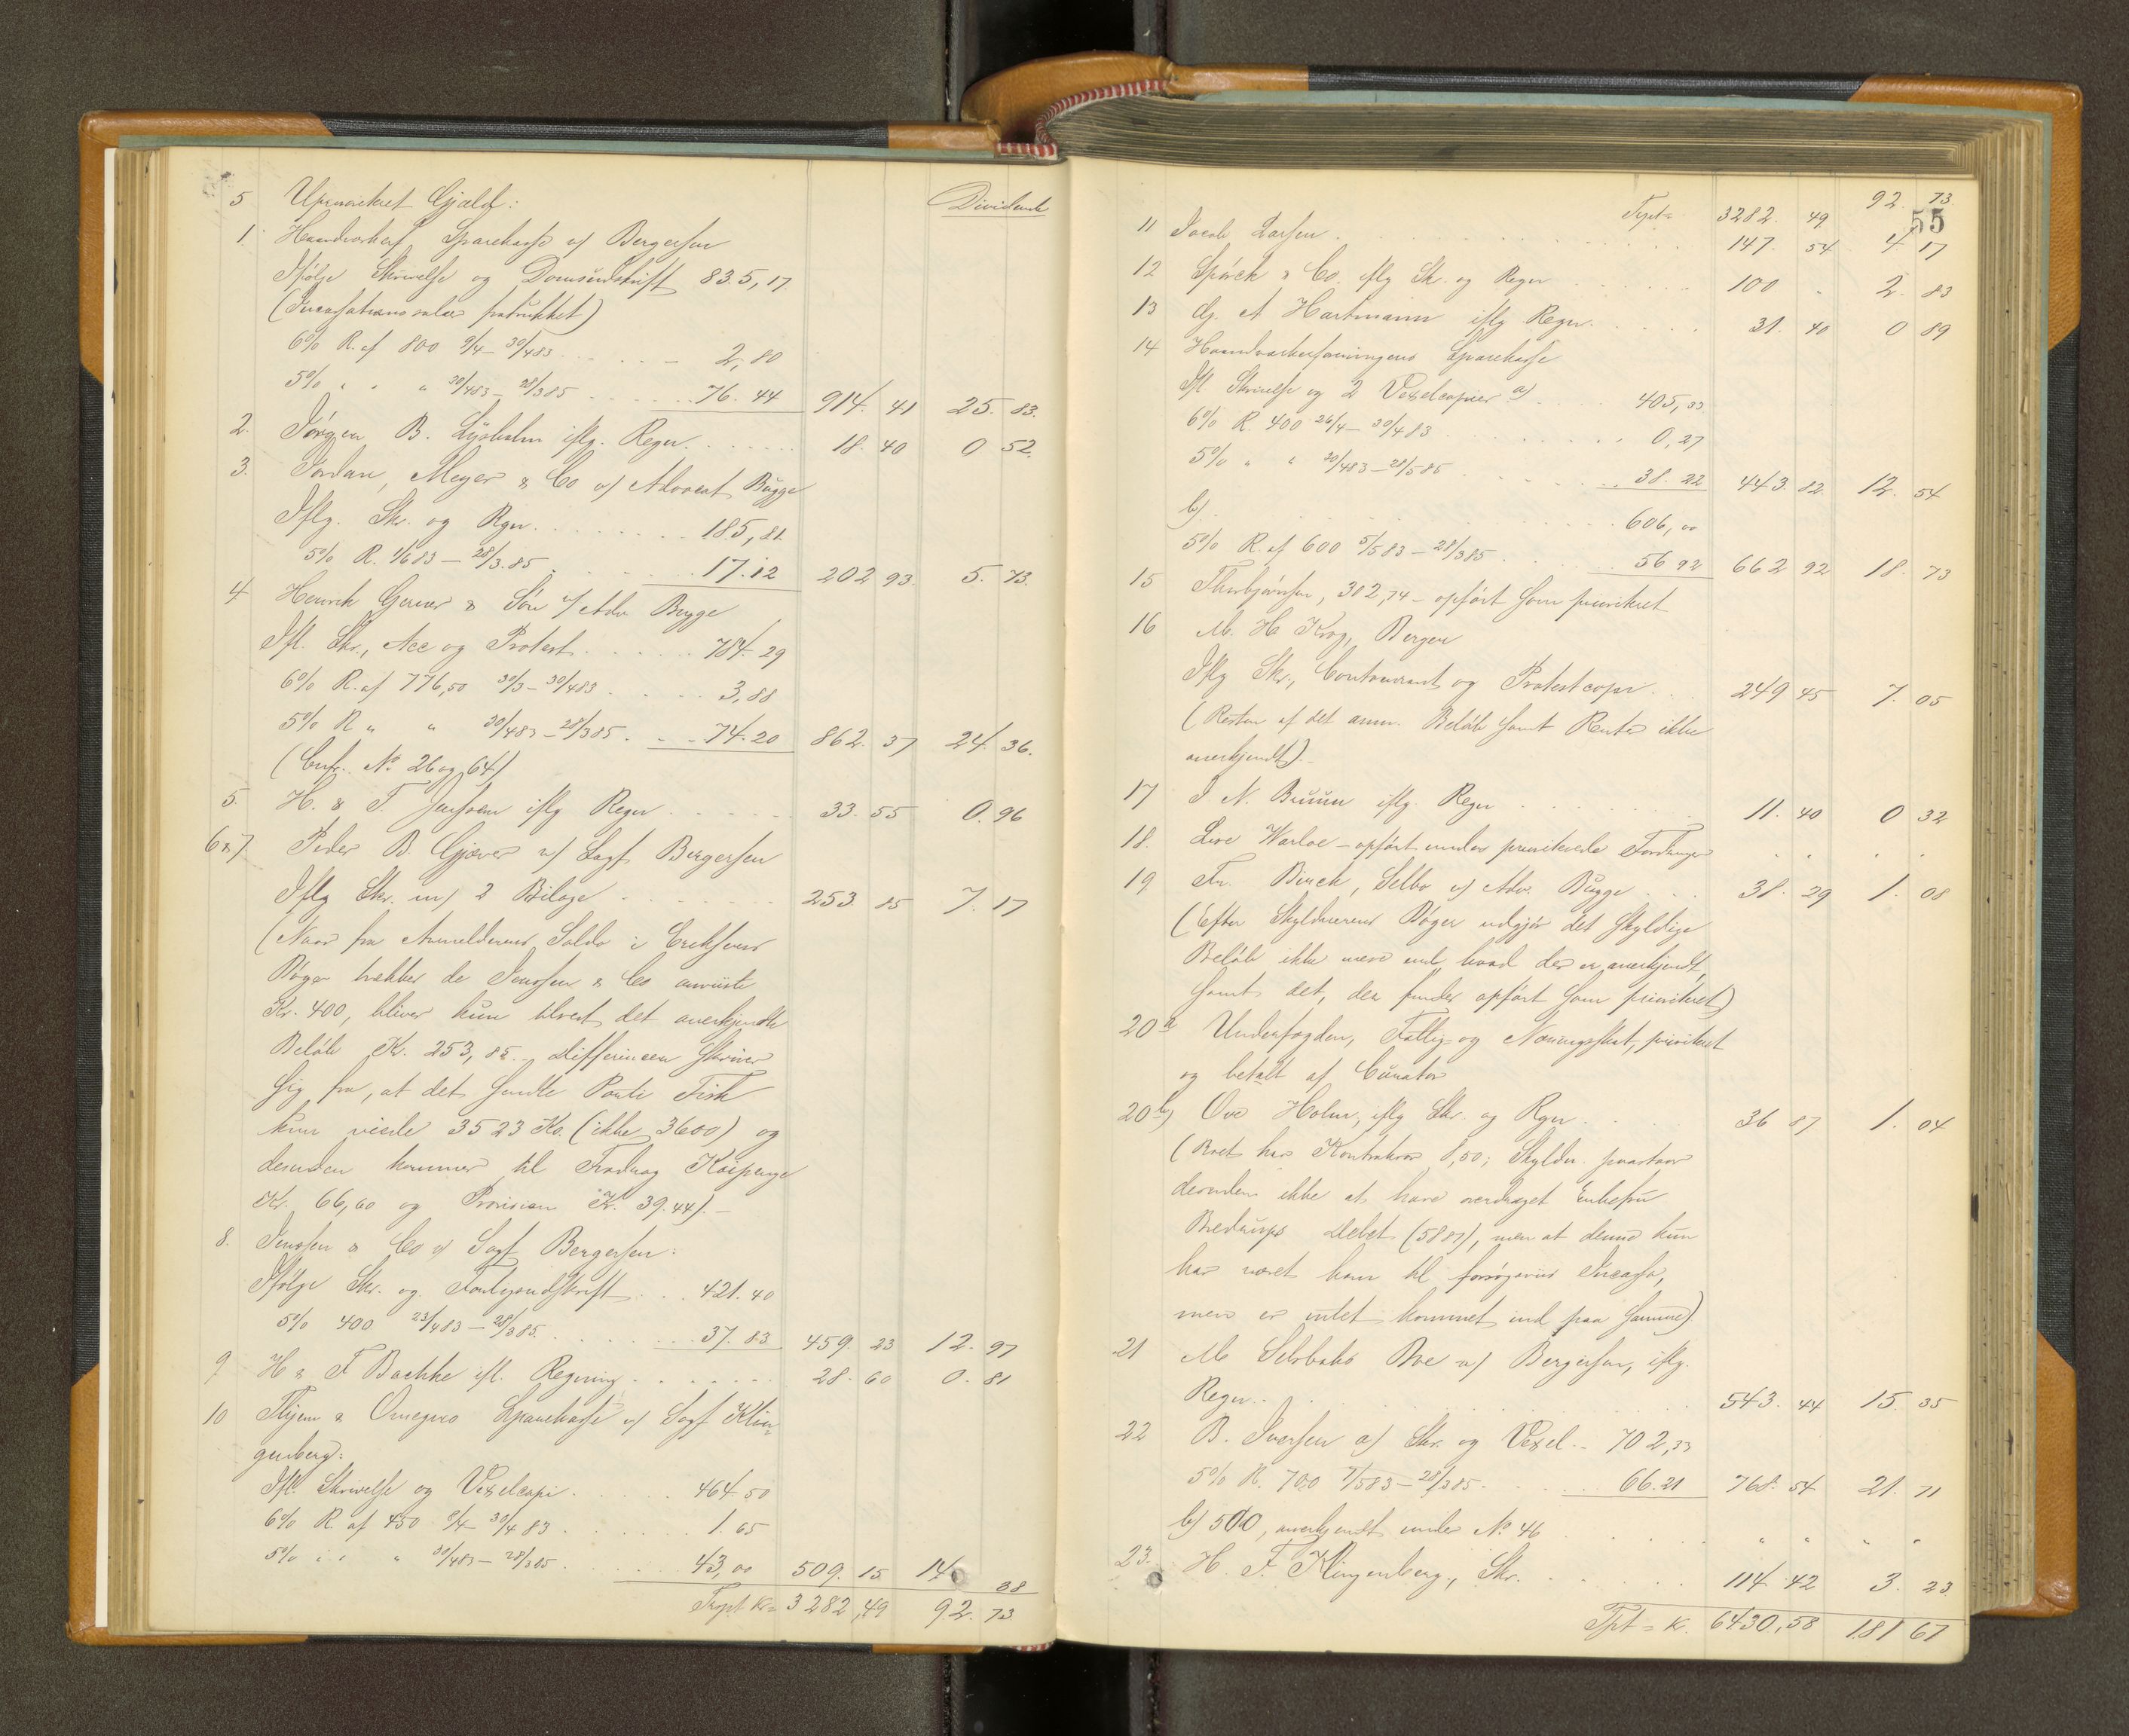 5 Uprioritert Gjæld: Dividende
1. Haandværkerf. Sparekasse v/ Bergersen
Ifølge Skrivelse og Domsudskrift 835,17.
(Incassationssalær fratrukket)
6% R. af 800 9/4 - 30/4 83 2,80
5% " " " 30/4 83 - 28/3 85 76.44 914. 41 25. 83.
2. Jørgen B. Lysholm iflg. Regn. 18. 40 0 52.
3. Jordan, Meyer & Co v/ Advocat Bugge
Iflg. Skr. og Regn. 185,81.
5% R. 1/6 83 - 28/3.85 17.12 202 93. 5. 73.
4 Henrik Gerner & Søn v/ Adv. Bugge
Ifl. Skr., Acc og Protest 784. 29
6% R. af 776,50 30/3 - 30/4 83 3,88
5% R " " 30/4 83 - 28/3 85. 74.20 862. 37 24. 36.
(Cnfr. No 26 og 64)
5. H. & F. Jenssen iflg Regn 33. 55 0. 96
6&7 Peder B. Gjæver v/ Sagf. Bergersen
Iflg Skr. m/ 2 Bilage 253. 85 7. 17
(Naar fra Anmelderens Saldo i Eriksens
Bøger trækkes de Jenssen & Co anviste
Kr. 400, bliver kun tilrest det anerkjendte
Beløb Kr. 253,85. Differencen skriver
sig fra, at det sendte Parti Fisk
kun veiede 3523 Ko. (ikke 3600) og
desuden kommer til Fradrag Kaipenge
Kr. 66,60 og Provision Kr. 39.44). -
8. Jenssen & Co v/ Sagf. Bergersen:
Ifølge Skr. og Forligsudskrift 421.40
5% 400 23/4 83 - 28/3 85. 37.83 459. 23 12. 97
9 H & F Bachke ifl. Regning 28. 60 0. 81
10 Thjem & Omegns Sparekasse v/ Sagf Klin-
genberg:
Ifl. Skrivelse og Vexelcopi 464.50
6% R af 450 8/4 - 30/4 83 1.65
5% " " " 30/4 83 - 28/3 85 43,00 509. 15. 14. 38
Trspt Kr= 3282,49 92. 73.
55
Trpt= 3282. 49 92. 73.
11 Jacob Larsen 147. 54 4 17
12 Spörck & Co. iflg Skr. og Regn 100 " 2. 83
13 Aj. A Hartmann iflg Regn. 31. 40 0 89
14 Haandværkerforeningens Sparekasse
Ifl Skrivelse og 2 Vexelcopier a) 405,33.
6% R. 400 26/4 - 30/4 83 0,27
5% " " 30/4 83 - 28/3 85 38.22 443. 82. 12. 54
b) 606,00
5% R. af 600 5/5 83 - 28/3 85 56 92 662 92 18. 73
15 Thorbjørnsen, 302,74 - opført som prioritert
16 M. H Krog, Bergen
Iflg Skr., Contocurant og Protestcopi 249 45 7. 05
(Resten af det anm. Beløb samt Renter ikke
anerkjendt). -
17 I N. Bruun iflg. Regn 11. 40 0 32
18. Live Warloe - opført under prioriterede Fordringer " " " "
19 Fr. Birch, Selbo v/ Adv. Bugge 38. 29 1. 08
(Efter Skyldnerens Bøger udgjør det skyldige
Beløb ikke mere end hvad der er anerkjendt,
samt det, der findes opført som prioritert)
20a Underfogden, Fattig- og Næringsskat, prioritert
og betalt af Curator
20b) Ove Holm, iflg Skr. og Regn 36 87 1. 04
(Boet har Kontrakrav 8,50; Skyldn. paastaar
desuden ikke at have overdraget Enkefru
Bredrups Debet (5887), men at denne kun
har været ham til forsøgsvis Incasso,
men er intet kommet ind paa samme)
21 M Selsbaks Bo v/ Bergersen, iflg.
Regn. 543. 44 15. 35
22 B. Iversen a/ Skr. og Vexel. 702,33
5% R. 700 7/5 83 - 28/3 85 66.21 768. 54 21. 71
b) 500, anerkjendt under No 46 " " " "
23. H. F. Klingenberg., Skr. 114. 42 3. 23
Tpt = K. 6430,58 181 67